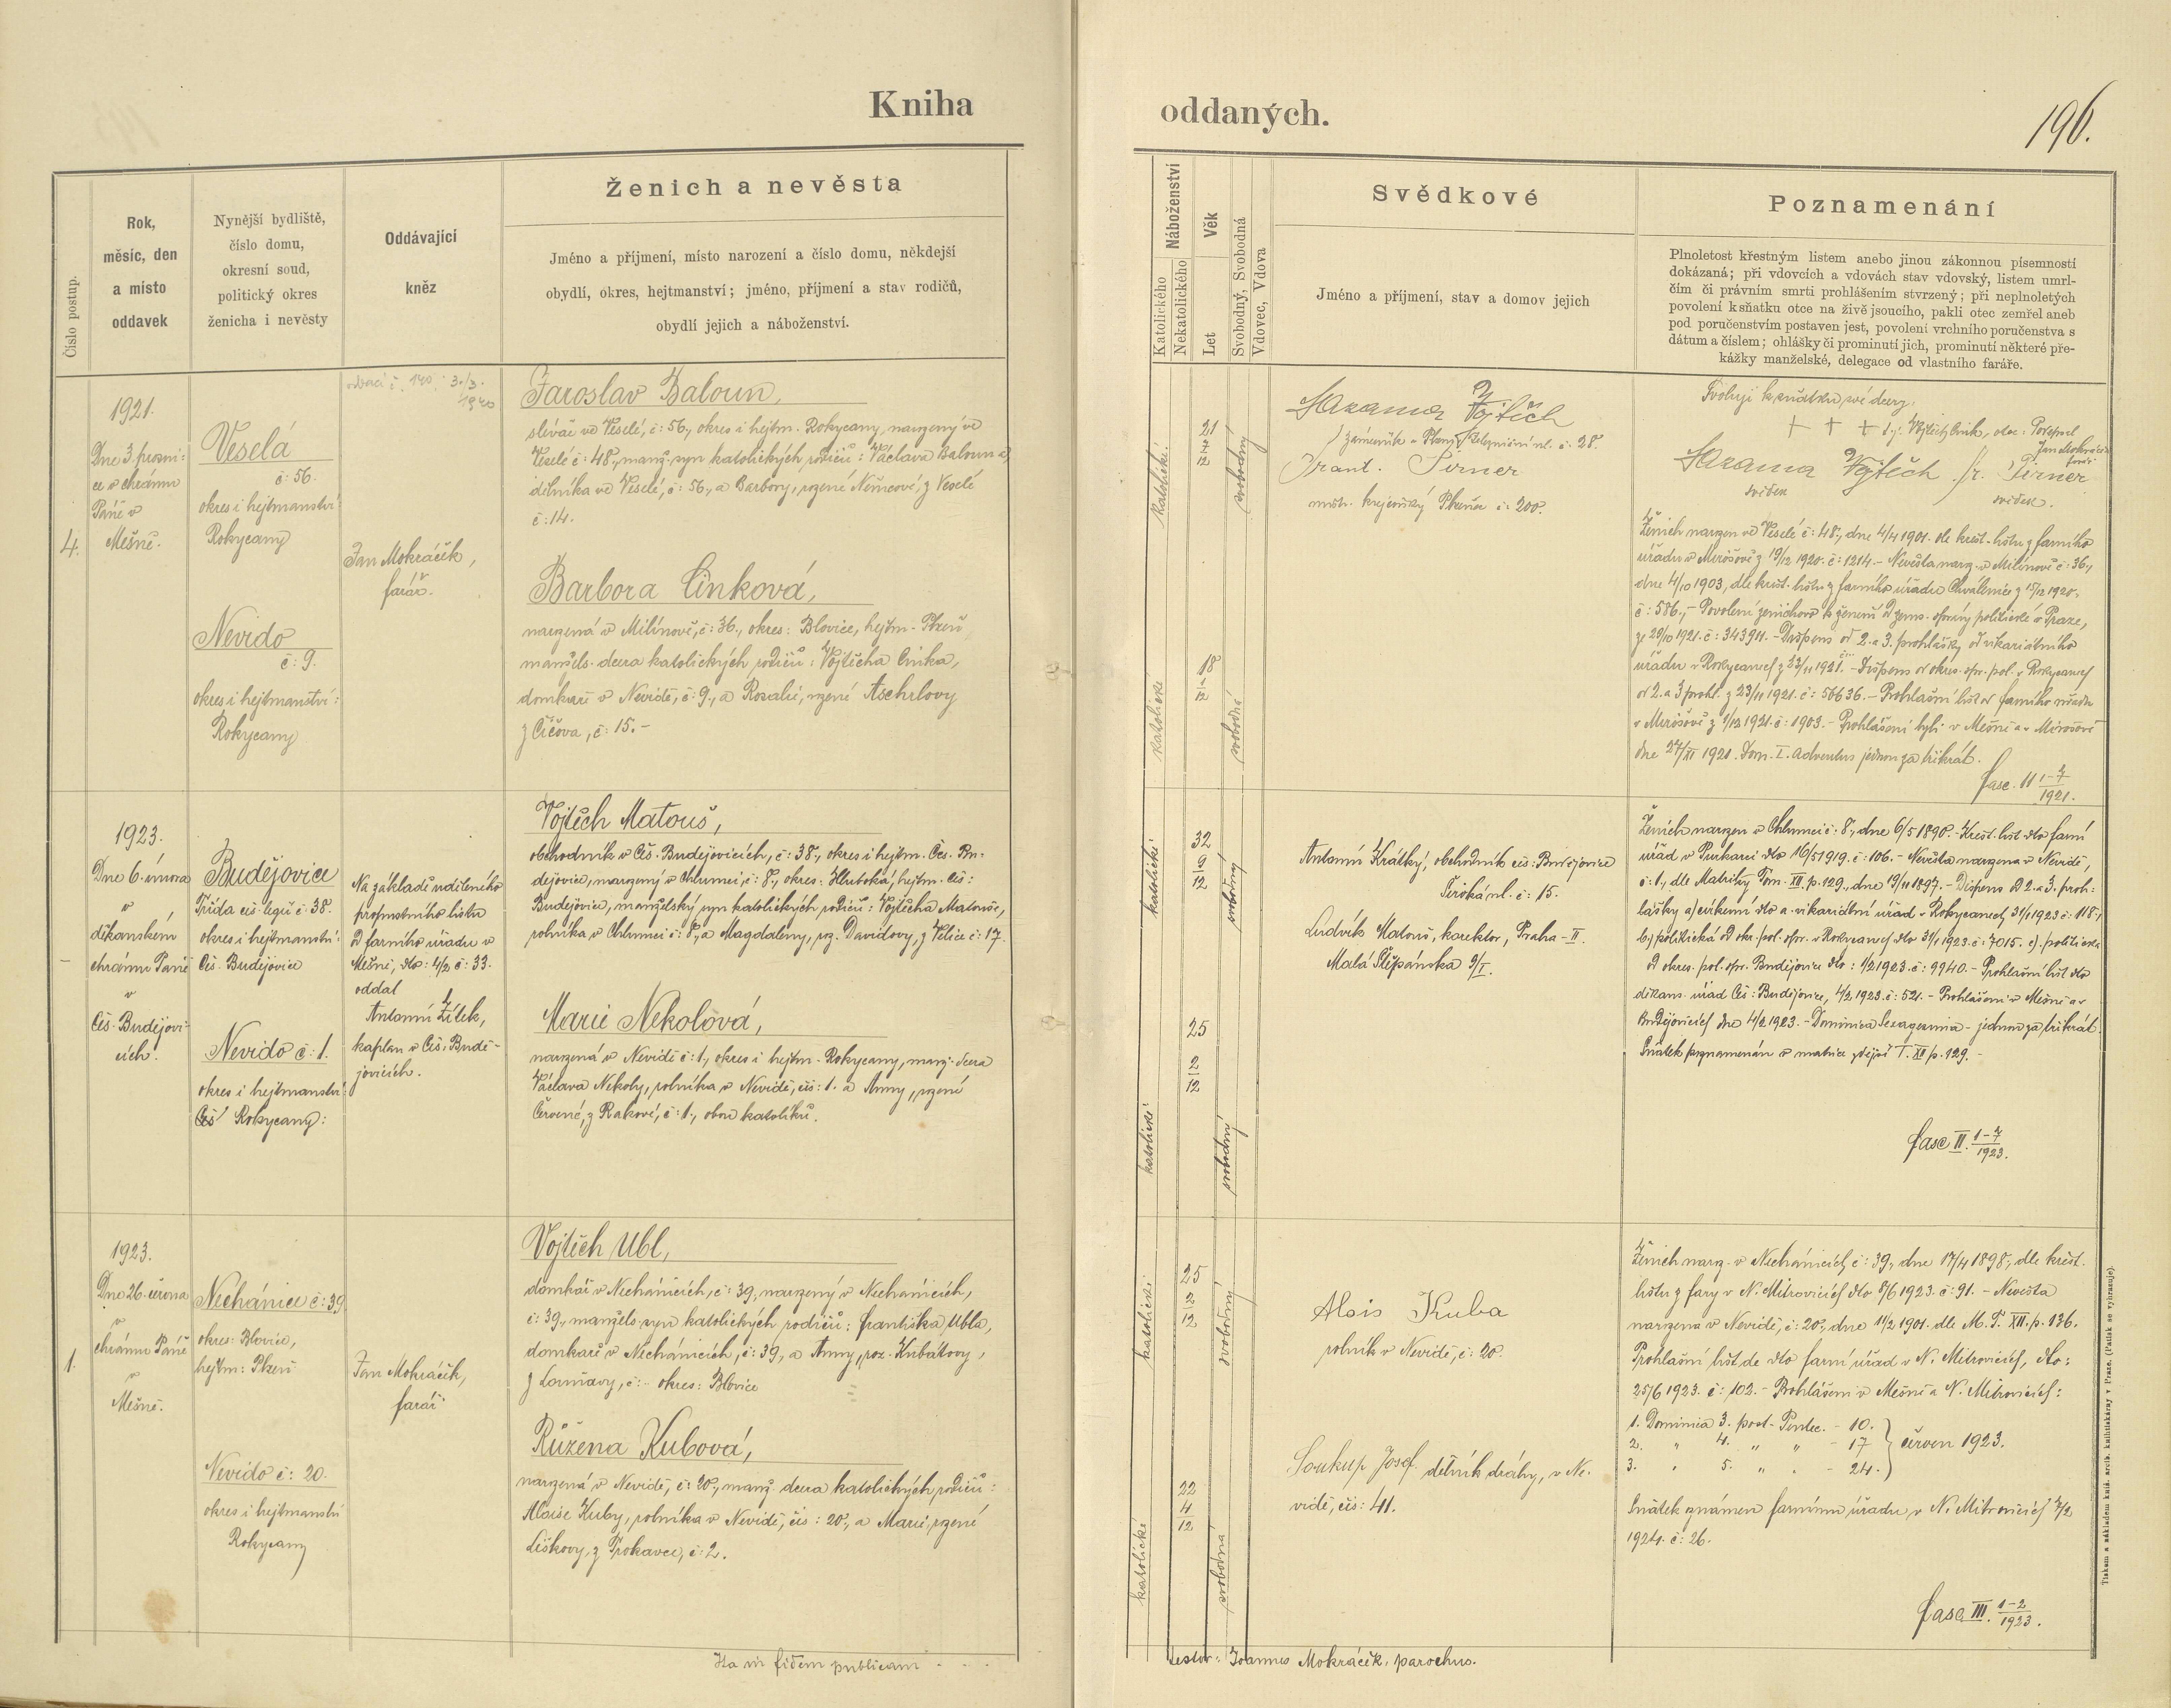 Kniha
oddaných.
196.
Číslo postup.
Rok,
měsíc, den
a místo
oddavek
Nynější bydliště,
číslo domu,
okresní soud,
politický okres
ženicha i nevěsty
Oddávající
kněz
Ženich a nevěsta
Jméno a příjmení, místo narození a číslo domu, někdejší
obydlí, okres, hejtmanství; jméno, příjmení a stav rodičů,
obydlí jejich a náboženství.
Náboženství
Katolického
Nekatolického
Věk
Let
Svobodný, Svobodná
Vdovec, Vdova
Svědkové
Jméno a příjmení, stav a domov jejich
Poznamenání
Plnoletost křestným listem anebo jinou zákonnou písemností
dokázaná; při vdovcích a vdovách stav vdovský, listem umrl-
čím či právním smrti prohlášením stvrzený; při neplnoletých
povolení k sňatku otce na živě jsoucího, pakli otec zemřel aneb
pod poručenstvím postaven jest, povolení vrchního poručenstva s
dátum a číslem; ohlášky či prominutí jich, prominutí některé pře-
kážky manželské, delegace od vlastního faráře.
4.
1921.
Dne 3. prosin-
ce v chrámu
Páně v
Mešně.
Veselá
č: 56.
okres i hejtmanství
Rokycany
Nevido
č: 9.
okres i hejtmanství:
Rokycany
140. 3./3.
1940
Jan Mokráček,
farář.
Jaroslav Baloun,
slévač ve Veselé, č: 56., okres i hejtm. Rokycany, narozený ve
Veselé č: 48., manž. syn katolických rodičů: Václava Balouna,
dělníka ve Veselé, č: 56., a Barbory, rozené Němcové, z Veselé
č: 14.
Barbora Cinková,
narozená v Milínově, č: 36., okres: Blovice, hejtm. Plzeň,
manžels. dcera katolických rodičů: Vojtěcha Cinka,
domkáře v Nevidě, č: 9., a Rosalie, rozené Aschrlovy
z Číčova, č: 15.-
katolické.
21
7
12
svobodný
katolické
18
1
12
svobodná
Sazama Vojtěch
zámečník v Plzni, Železniční ul. č: 28.
Frant. Pirner
mistr. krejčovský Plzeň č: 200.
Svoluji k sňatku své dcery:
+ + + t. j. Vojtěch Cink, otec. Podepsal
Jan Mokráček
farář
Sazama Vojtěch fr. Pirner
svědek svědek.
Ženich narozen ve Veselé č: 48., dne 4/4 1901. dle křest. listu z farního
úřadu v Mirošově z 19/12 1920. č: 1214. - Nevěsta naroz. v Milínově č: 36.,
dne 4/10 1903, dle křest. listu z farního úřadu Chválenice z 15/12 1920.
č: 586., - Povolení ženichovo k ženění od zems. správy politické v Praze,
z 20/10 1921. č: 343911. - Dispens od 2. a 3. prohlášky od vikariátního
úřadu v Rokycanech z 23/11 1921. - Dispens od okres. spr. pol. v Rokycanech
od 2. a 3 prohl. z 23/11 1921. č: 56636. - Prohlašní list od farního úřadu
v Mirošově z 1/12 1921. č: 1903. - Prohlášeni byli v Mešně a v Mirošově
dne 27/XI 1921. Dom. I. Adventus jednou za třikrát.
fasc. II 1-7
1921.
-
1923.
Dne 6. února
v
děkanském
chrámu Páně
v
Čes. Budějovi-
cích.
Budějovice
Třída čes. legií č: 38.
okres i hejtmanství:
Čes. Budějovice
Nevido č: 1.
okres i hejtmanství
Rokycany:
Na základě uděleného
propustního listu
od farního úřadu v
Mešně, dto: 4/2 č: 33.
oddal
Antonín Žítek,
kaplan v Čes. Budě-
jovicích.
Vojtěch Matouš,
obchodník v Čes. Budějovicích, č: 38., okres i hejtm. Čes. Bu-
dějovice, narozený v Chlumci, č: 8., okres: Hluboká, hejtm. Čes:
Budějovice, manželský syn katolických rodičů: Vojtěcha Matouše,
rolníka v Chlumci č: 8., a Magdaleny, roz. Davidovy, z Velice č: 17.
Marie Nekolová,
narozená v Nevidě č: 1., okres i hejtm. Rokycany, manž. dcera
Václava Nekoly, rolníka v Nevidě, čís: 1. a Anny, rozené
Červené, z Rakové, č: 1., obou katolíků.
katolické
32
9
12
svobodný
katolické
25
2
12
svobodná
Antonín Krátký, obchodník čes: Budějovice
Široká ul. č: 15.
Ludvík Matouš, korektor, Praha - II.
Malá Štěpánská 9/I.
Ženich narozen v Chlumci č: 8., dne 6/5 1890. - Křest. list dto farní
úřad v Purkarci dto 16/5 1919. č: 106. - Nevěsta narozena v Nevidě,
č: 1., dle Matriky Tom. XII. p. 129., dne 19/11 1897. - Dispens od 2. a 3. proh-
lášky a) církevní dto a. vikariátní úřad v Rokycanech 31/1 1923 č: 118.,
b.) politická od okr. pol. spr. v Rokycanech dto 31/1 1923. č: 7015. c). politická
od okres. pol. spr. Budějovice dto: 1/2 1923. č: 9940. - Prohlašní list dto
děkans. úřad Čes: Budějovice, 4/2 1923. č: 521. - Prohlášeni v Mešně a v
Budějovicích dne 4/2 1923. - Dominica Sexagesima - jednou za třikrát.
Sňatek poznamenán v matrice zdejší T. XII p. 129. -
fasc II. 1-7
1923.
1.
1923.
Dne 26. června
v
chrámu Páně
v
Mešně.
Nechánice č: 39
okres: Blovice,
hejtm: Plzeň
Nevido č: 20.
okres i hejtmanství
Rokycany
Jan Mokráček,
farář
Vojtěch Ubl,
domkář v Nechánicích, č: 39, narozený v Nechánicích,
č: 39., manžels. syn katolických rodičů: Františka Ubla,
domkáře v Nechánicích, č: 39, a Anny, roz. Kubátovy,
z Lovčic, č: - okres: Blovice
Růžena Kubová,
narozená v Nevidě, č: 20., manž. dcera katolických rodičů:
Aloise Kuby, rolníka v Nevidě, čís: 20., a Marie, rozené
Liškovy, z Trokavce, č: 2.
katolické
25
2
12
svobodný
katolické
22
4
12
svobodná
Alois Kuba
rolník v Nevidě, č: 20.
Soukup Josef dělník dráhy, v Ne-
vidě, čís: 41.
Ženich naroz. v Nechánicích č: 39, dne 17/4 1898., dle křest.
listu z fary v N. Mitrovicích dto 8/6 1923. č: 91. - Nevěsta
narozena v Nevidě, č: 20., dne 11/2 1901. dle M. T. XII. p. 136.
Prohlašní list de dto farní úřad v N. Mitrovicích, dto:
25/6 1923. č: 102. - Prohlášeni v Mešně a N. Mitrovicích:
1. Dominica 3. post. Pentec. - 10.
2. " 4. " " - 17 } červen 1923.
3. " 5. " " - 24.
Sňatek oznámen farnímu úřadu v N. Mitrovicích 7/2
1924. č: 26.
fasc III. 1-2
1923.
Ita in fidem publicam - - -
testor: Joannes Mokráček, parochus.
Tiskem a nákladem kníž. arcib. knihtiskárny v Praze. (Patisk se vyhrazuje).